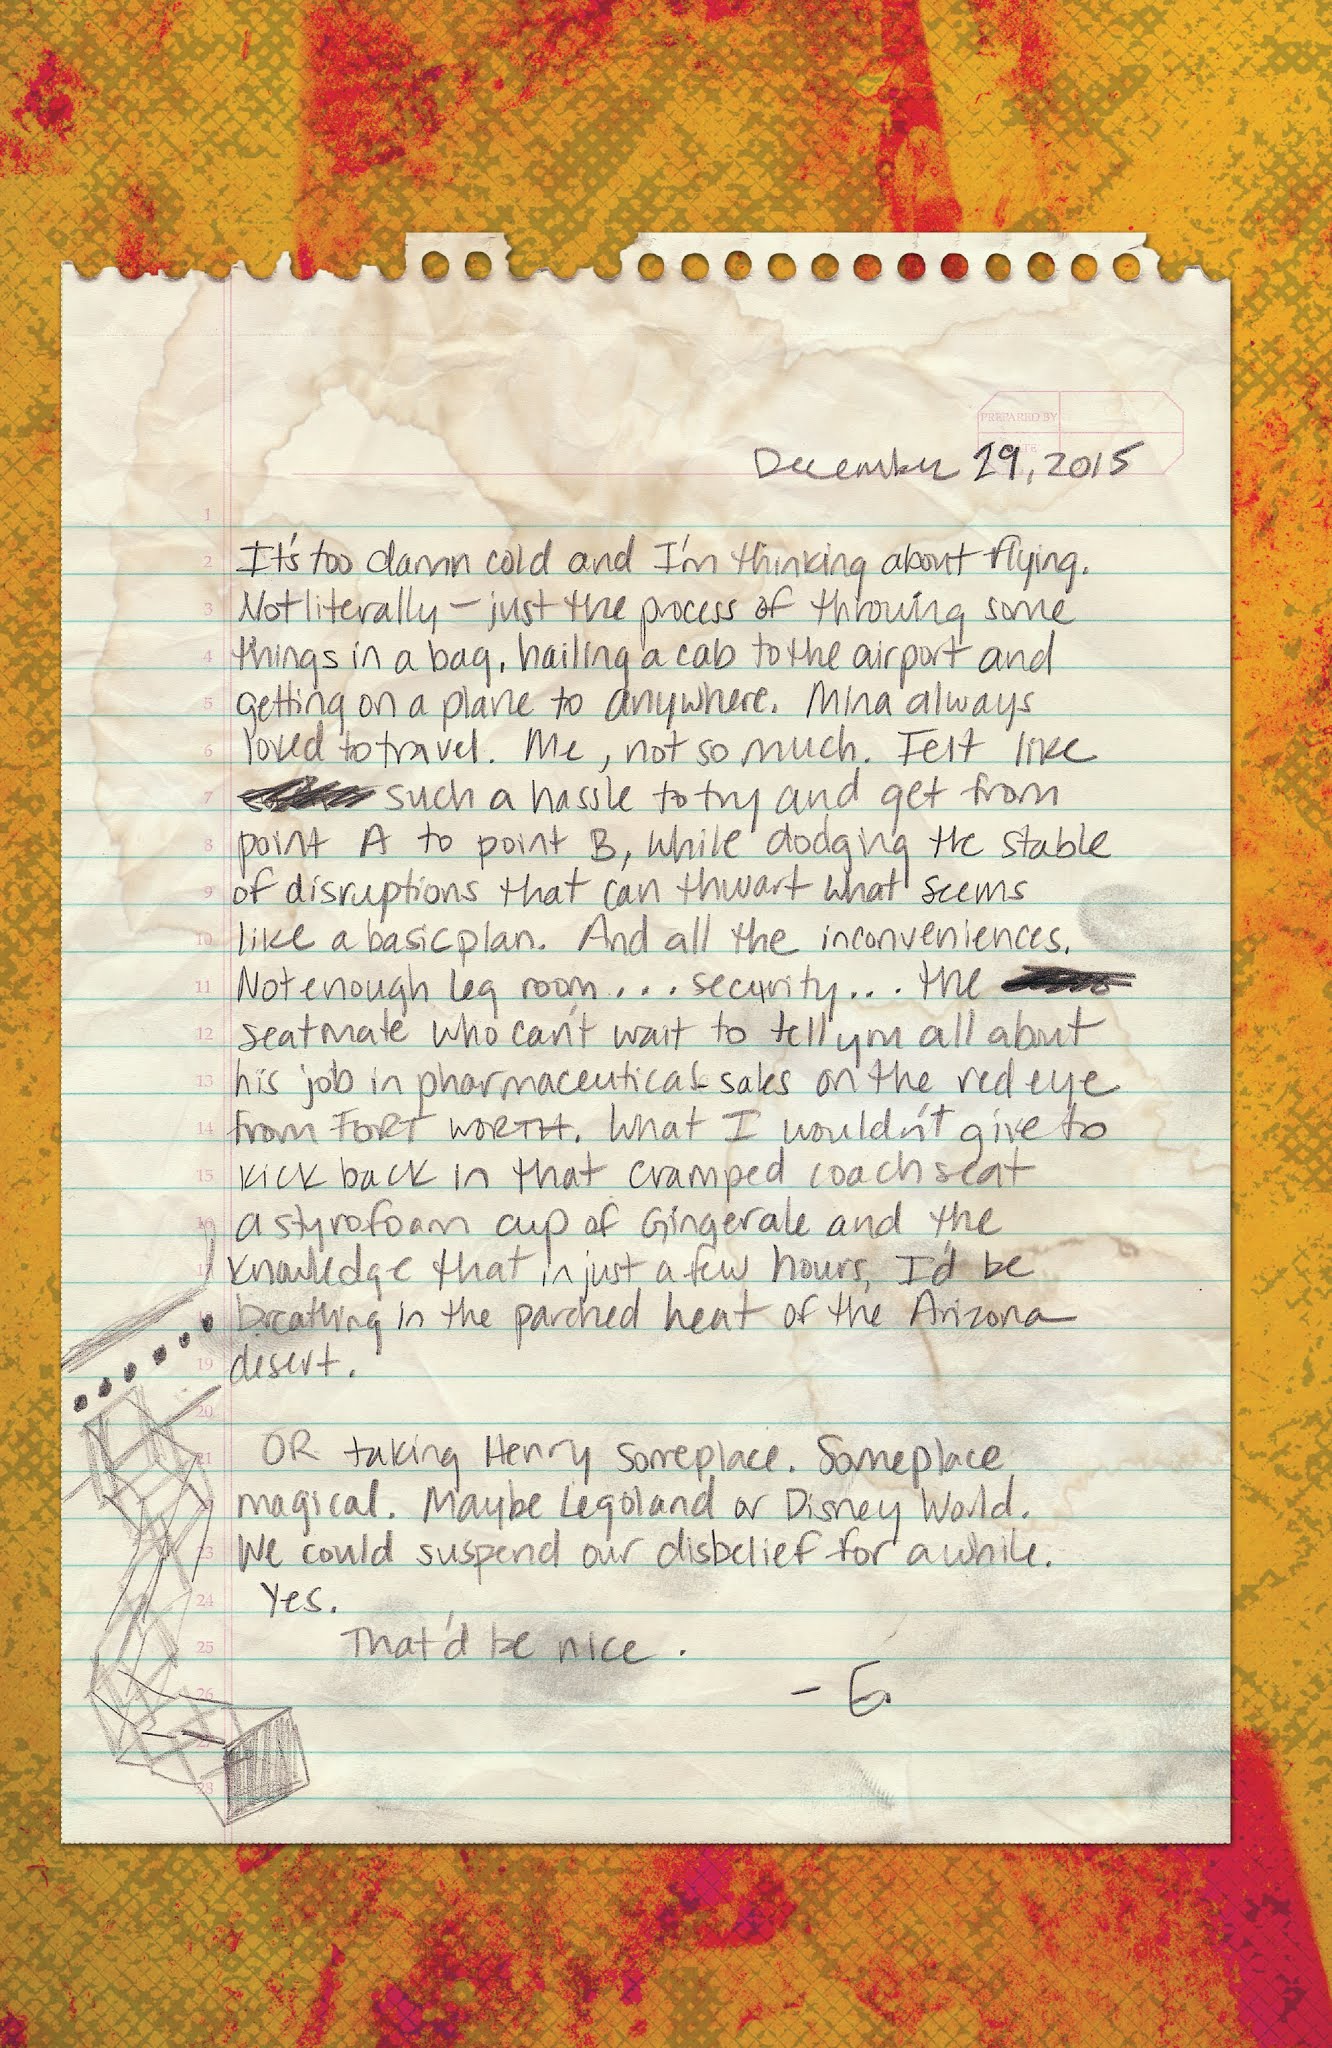 PREPARED BY
December 29, 2015
1
2 It's too damn cold and I'm thinking about flying.
3 Not literally – just the process of throwing some
4 things in a bag, hailing a cab to the airport and
5 getting on a plane to anywhere. Mina always
6 loved to travel. Me, not so much. Felt like
7 such a hassle to try and get from
8 point A to point B, while dodging the stable
9 of disruptions that can thwart what seems
10 like a basic plan. And all the inconveniences.
11 Not enough leg room... security... the
12 seatmate who can't wait to tell you all about
13 his job in pharmaceutical sales on the red eye
14 from FORT WORTH. What I wouldn't give to
15 kick back in that cramped coach seat
16 a styrofoam cup of Gingerale and the
17 knowledge that in just a few hours, I'd be
18 breathing in the parched heat of the Arizona
19 desert.
20
21 OR taking Henry someplace. Someplace
magical. Maybe Legoland or Disney World.
23 We could suspend our disbelief for a while.
24 Yes.
25 That'd be nice.
26 – E.
27
28